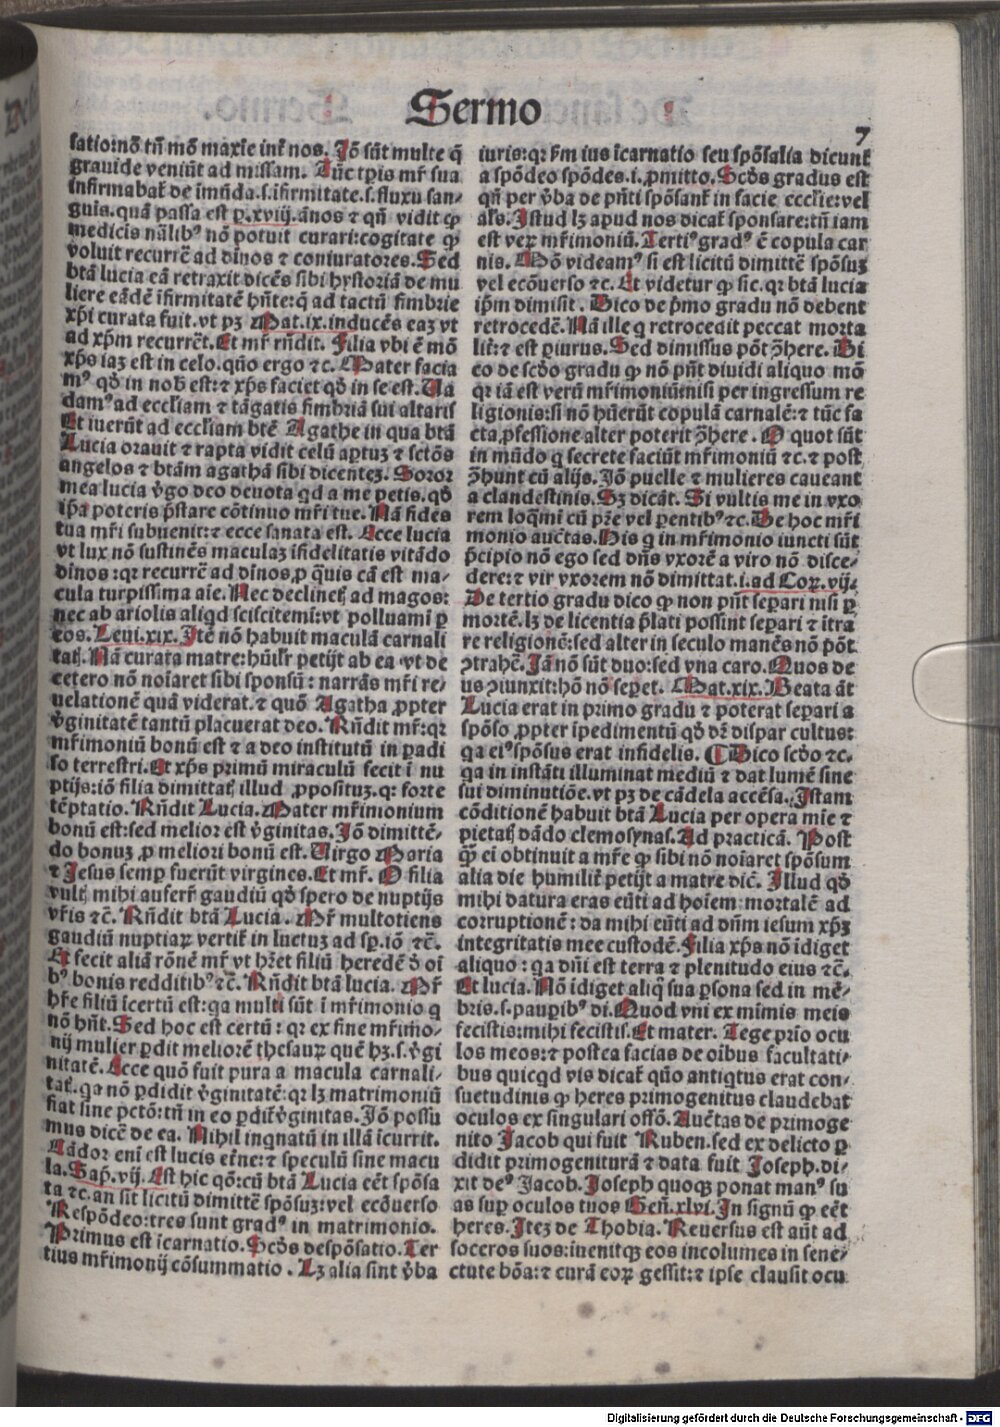 Sermo
7
satio:nō tñ mō maxīe int̄ nos. Jō sūt multe q̄
grauide veniūt ad missam. Tūc tp̄is mr̄ sua
infirmabat̄ de īmūda.s.ifirmitate.s.fluxu san-
guis.quā passa est ꝑ.xviij.ānos ⁊ qñ vidit ꝙ
medicis nālib⁹ nō potuit curari:cogitate ꝙ
voluit recurrē ad dīnos ⁊ coniuratores. Sed
btā lucia eā retraxit dicēs sibi hystoriā de mu
liere eādē īfirmitatē hñte:q̄ ad tactū fimbrie
xp̄i curata fuit.vt pꝫ Mat.ix.inducēs eaꝫ vt
ad xp̄m recurrēt. Et mr̄ rñdit. Filia vbi ē mō
xp̄s iaꝫ est in celo.qūo ergo ⁊c. Mater facia
m⁹ qđ in nob̄ est:⁊ xp̄s faciet qđ in se est. Ua
dam⁹ ad eccl̄iam ⁊ tāgatis fimbriā sui altaris
Et iuerūt ad eccl̄iam btē Agathe in qua btā
Lucia orauit ⁊ rapta vidit celū aꝑtuꝫ ⁊ sctōs
angelos ⁊ btām agathā sibi dicenteꝫ. Soror
mea lucia v̄go deo deuota qd a me petis.qđ
ip̄a poteris p̄stare cōtinuo mr̄i tue. Nā fides
tua mr̄i subuenit:⁊ ecce sanata est. Ecce lucia
vt lux nō sustinēs maculaꝫ ifidelitatis vitādo
dīnos:qꝛ recurrē ad dīnos,ꝓ q̄uis cā est ma-
cula turpissima aīe. Nec declinetꝭ ad magos:
nec ab ariolis aliqd sciscitemī:vt polluami ꝑ
eos. Leui.xix. Itē nō habuit maculā carnali
tatꝭ. Nā curata matre:hūilr̄ petijt ab ea vt de
cetero nō noīaret sibi sponsū: narrās mr̄i re-
uelationē quā viderat.⁊ quō Agatha ꝓpter
v̄ginitatē tantū placuerat deo. Rñdit mr̄:qꝛ
mr̄imoniū bonū est ⁊ a deo institutū in padi
so terrestri. Et xp̄s primū miraculū fecit ī nu
ptijs:iō filia dimittatꝭ illud ꝓpositū.qꝛ forte
tēptatio. Rñdit Lucia. Mater mr̄imonium
bonū est:sed melior est v̄ginitas. Jō dimittē-
do bonuꝫ ꝓ meliori bonū est. Uirgo Maria
⁊ Jesus semꝑ fuerūt virgines. Et mr̄. O filia
vultꝭ mihi auferr̄ gaudiū qđ spero de nuptijs
vr̄is ⁊c̄. Rñdit btā Lucia. Mr̄ multotiens
gaudiū nuptiaꝝ vertit̄ in luctuꝫ ad sꝑ.iō ⁊c̄.
Et fecit aliā rōnē mr̄ vt hr̄et filiū heredē v̄ oī
b⁹ bonis redditib⁹ ⁊c̄. Rñdit btā lucia. Mr̄
hr̄e filiū īcertū est:qa multi sūt ī mr̄imonio q
nō hñt. Sed hoc est certū: qꝛ ex fine mr̄imo-
nij mulier ꝑdit meliorē thesauꝝ quē hꝫ.s.v̄gi
nitatē. Ecce quō fuit pura a macula carnali-
tatꝭ.qa nō ꝑdidit v̄ginitatē:qꝛ lꝫ matrimoniū
fiat sine pctō:tñ in eo ꝑdit̄ v̄ginitas. Jō possu
mus dicē de ea. Nihil inqnatū in illā īcurrit.
Cādor enī est lucis et̄ne:⁊ speculū sine macu
la. Sap̄.vij. Est hic qō:cū btā Lucia eēt spōsa
ta ⁊c.an sit licitū dimittē spōsuꝫ:vel ecōuerso
Respōdeo:tres sunt grad⁹ in matrimonio.
Primus est īcarnatio. Scđs despōsatio. Ter
tius mr̄imonij cōsummatio. Lꝫ alia sint v̄ba
iuris:qꝛ ẜm ius īcarnatio seu spōsalia dicunt̄
a spōdeo spōdes.i.ꝓmitto. Scđs gradus est
qñ per v̄ba de pñti spōsant̄ in facie eccl̄ie:vel
al̄s. Istud lꝫ apud nos dicat̄ sponsare:tñ iam
est veꝝ mr̄imoniū. Terti⁹ grad⁹ ē copula car
nis. Mō videam⁹ si est licitū dimittē spōsuꝫ
vel ecōuerso ⁊c. Et videtur ꝙ sic.qꝛ btā lucia
ip̄m dimisit. Dico de p̄mo gradu nō debent
retrocedē. Nā ille q retrocedit peccat morta
lit̄:⁊ est ꝑiurus. Sed dimissus pōt ꝯhere. Di
co de scđo gradu ꝙ nō pñt diuidi aliquo mō
qꝛ iā est verū mr̄imoniū:nisi per ingressum re
ligionis:si nō hūerūt copulā carnalē:⁊ tūc fa
cta,ꝓfessione alter poterit ꝯhere. O quot sūt
in mūdo q secrete faciūt mr̄imoniū ⁊c.⁊ post
ꝯhunt cū alijs. Jō puelle ⁊ mulieres caueant
a clandestinis. Sꝫ dicāt. Si vultis me in vxo
rem loqmī cū pr̄e vel ꝑentib⁹ ⁊c. De hoc mr̄i
monio auctas. His q in mr̄imonio iuncti sūt
p̄cipio nō ego sed dñs vxorē a viro nō disce-
dere:⁊ vir vxorem nō dimittat.i.ad Coꝝ.vij.
De tertio gradu dico ꝙ non pñt separi nisi ꝑ
mortē.lꝫ de licentia p̄lati possint separi ⁊ ītra
re religionē:sed alter in seculo manēs nō pōt
ꝯtrahē. Iā nō sūt duo:sed vna caro. Quos de
us ꝯiunxit:hō nō sepet. Mat.xix. Beata āt
Lucia erat in primo gradu ⁊ poterat separi a
spōso ꝓpter īpedimentū qđ dr̄ dispar cultus:
qa ei⁹ spōsus erat infidelis. ¶ Dico scđo ⁊c.
qa in instāti illuminat mediū ⁊ dat lumē sine
sui diminutiōe.vt pꝫ de cādela accēsa. Istam
cōditionē habuit btā Lucia per opera mīe ⁊
pietatꝭ dādo elemosynas. Ad practicā. Post
q̄ꝫ ei obtinuit a mr̄e ꝙ sibi nō noīaret spōsum
alia die humilit̄ petijt a matre dic̄. Illud qđ
mihi datura eras eūti ad hoīem mortalē ad
corruptionē: da mihi eūti ad dñm iesum xp̄ꝫ
integritatis mee custodē. Filia xp̄s nō īdiget
aliquo: qa dñi est terra ⁊ plenitudo eius ⁊c̄.
Et lucia. Nō īdiget aliq̄ sua ꝑsona sed in mē-
bris.s.pauꝑib⁹ di. Quod vni ex mīmis meis
fecistis:mihi fecistis. Et mater. Tege prīo ocu
los meos:⁊ postea facias de oībus facultati-
bus quicqd vis dicat̄ qūo antiqtus erat con-
suetudinis ꝙ heres primogenitus claudebat
oculos ex singulari offō. Auctas de primoge
nito Jacob qui fuit Ruben.sed ex delicto ꝑ
didit primogeniturā ⁊ data fuit Joseph.di-
xit de⁹ Jacob. Joseph quoqꝫ ponat man⁹ su
as suꝑ oculos tuos Gen̄.xlvi. In signū ꝙ eēt
heres. Iteꝫ de Thobia. Reuersus est aūt ad
soceros suos:iuenitqꝫ eos incolumes in sene-
ctute bōa:⁊ curā eoꝝ gessit:⁊ ipse clausit ocu
Digitalisierung gefördert durch die Deutsche Forschungsgemeinschaft - DFG